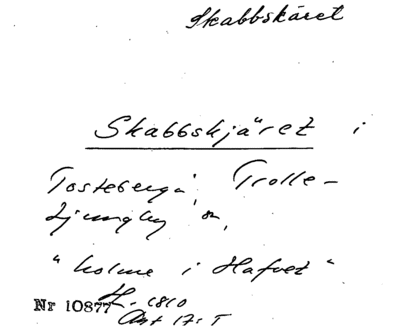 Skabbskäret
Skabbskjäret i
Tosteberga, Trolle-
Ljungby sn,
"holme i Hafvet"
Nr 10877 1810
Akt 17: T